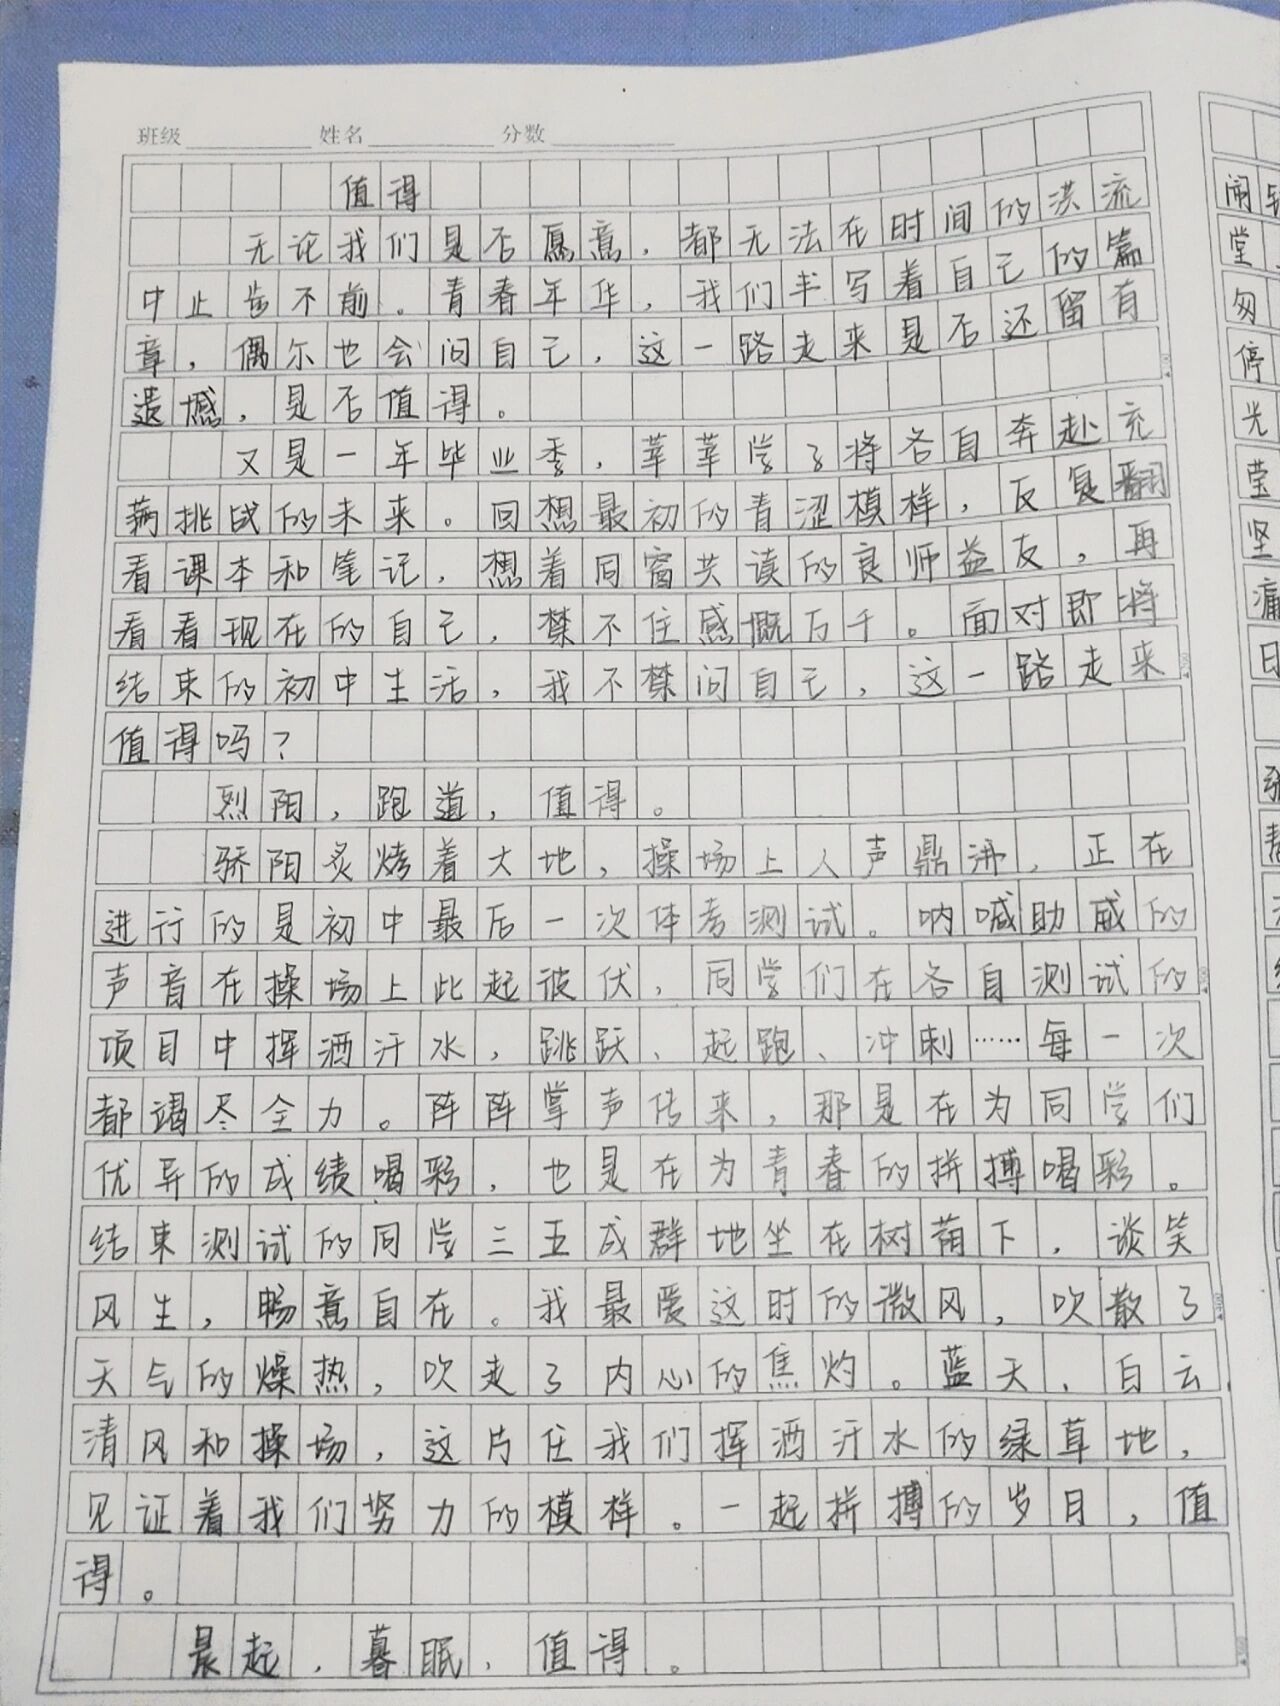 班级 姓名 分数
值得
无论我们是否愿意，都无法在时间的洪流
中止步不前。青春年华，我们书写着自己的篇
章，偶尔也会问自己，这一路走来是否还留有
遗憾，是否值得。
又是一年毕业季，莘莘学子将各自奔赴充
满挑战的未来。回想最初的青涩模样，反复翻
看课本和笔记，想着同窗共读的良师益友，再
看看现在的自己，禁不住感慨万千。面对即将
结束的初中生活，我不禁问自己，这一路走来
值得吗？
烈阳，跑道，值得。
骄阳炙烤着大地，操场上人声鼎沸，正在
进行的是初中最后一次体考测试。呐喊助威的
声音在操场上此起彼伏，同学们在各自测试的
项目中挥洒汗水，跳跃、起跑、冲刺……每一次
都竭尽全力。阵阵掌声传来，那是在为同学们
优异的成绩喝彩，也是在为青春的拼搏喝彩。
结束测试的同学三五成群地坐在树荫下，谈笑
风生，畅意自在。我最爱这时的微风，吹散了
天气的燥热，吹走了内心的焦灼。蓝天、白云、
清风和操场，这片任我们挥洒汗水的绿草地，
见证着我们努力的模样。一起拼搏的岁月，值
得。
晨起，暮眠，值得。
闹
堂
匆
停
光
莹
坚
痛
日